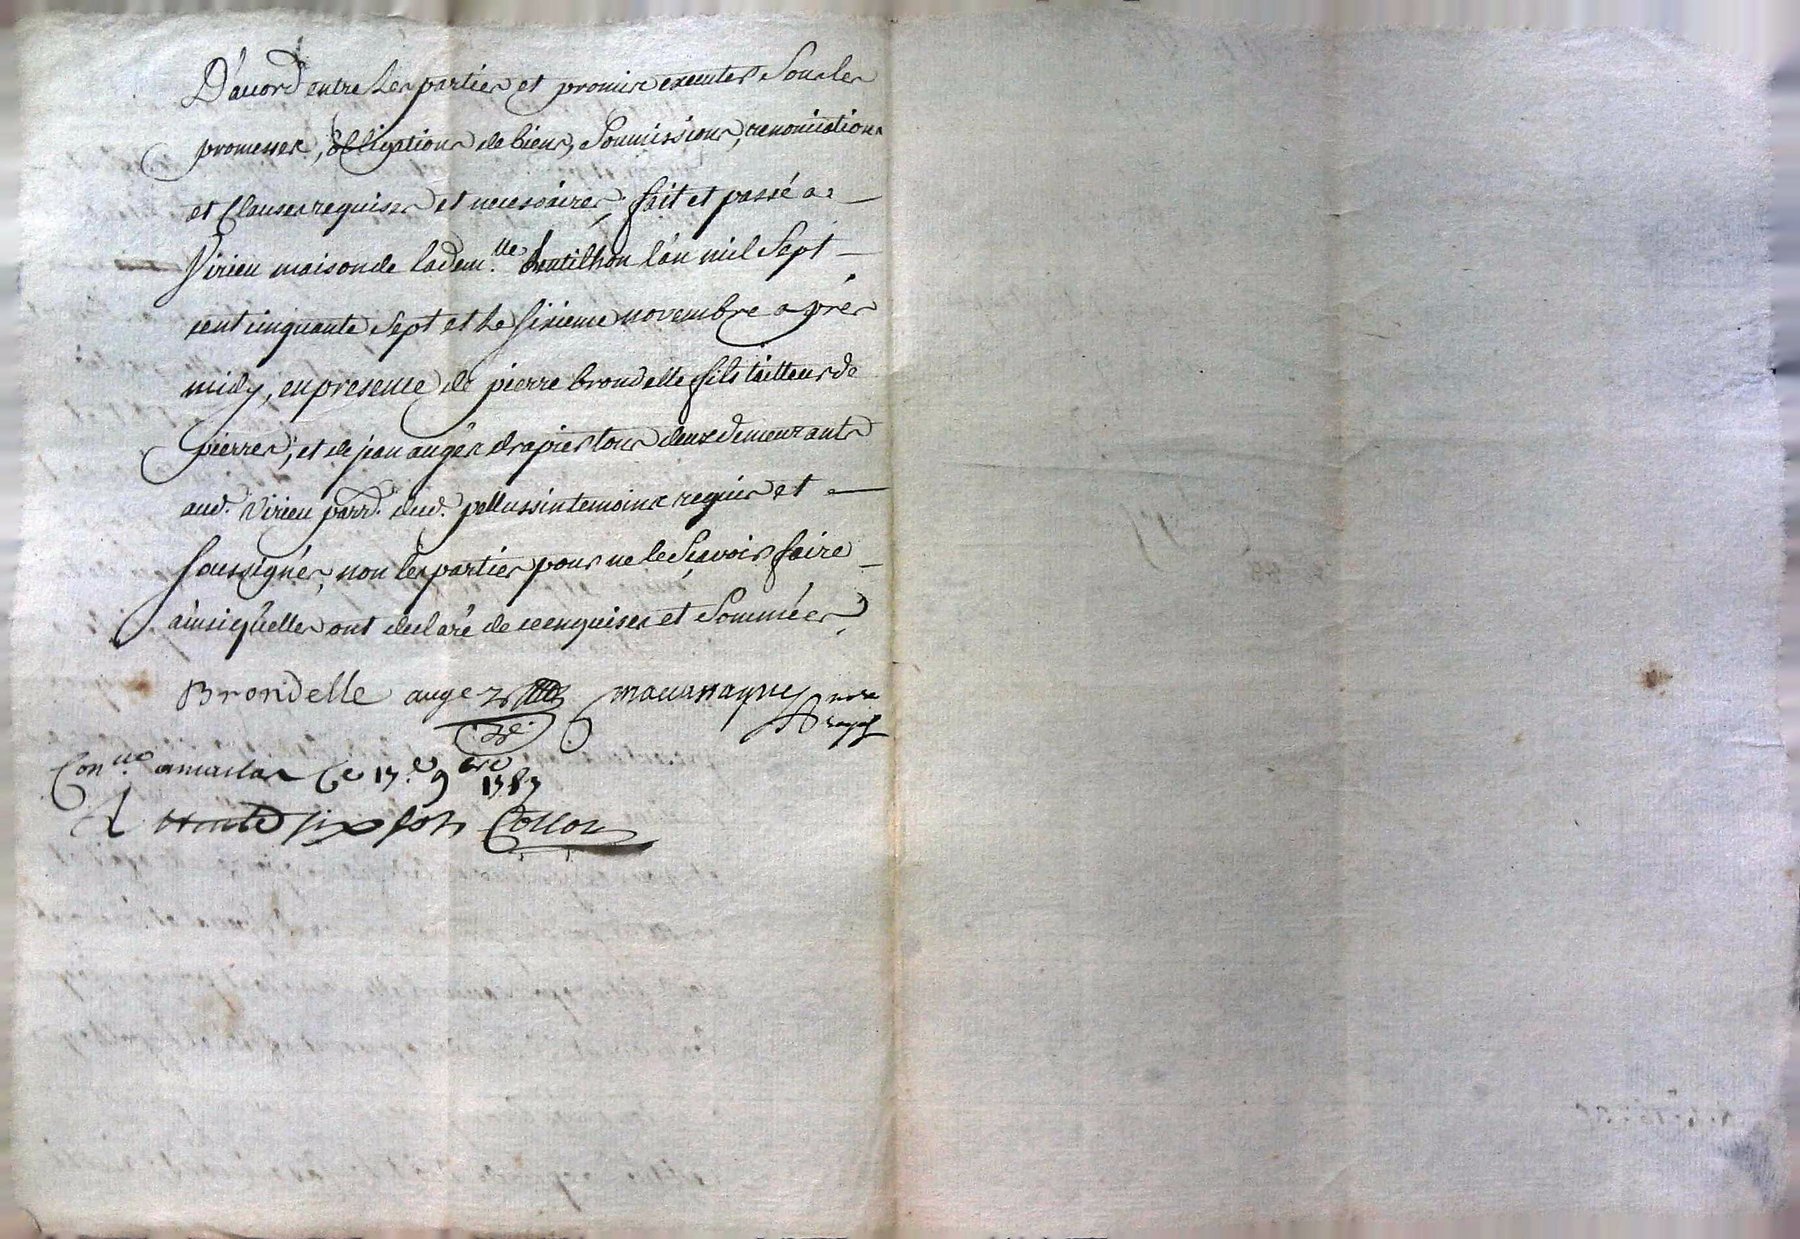 D'acord entre Les parties et promis executer Sous les
promesses, obligations de biens, Soumissions, renonciations
et Clauses requises et necessaires, fait et passé a
Virieu maison de lad. dem.lle Chatilhon l'an mil Sept
cent cinquante Sept et Le Sixieme novembre après
midy, en presence de pierre brondelle fils tailleur de
pierres, et de jean augér drapier tous deux demeurants
aud. Virieu parr. dud. pellussin temoins requis et
Soussignés, non les parties pour ne le Sçavoir faire
ainsi qu'elles ont declaré de ce enquises et Sommées,
Brondelle auger
Con.lle a maclas Ce 17.e 9bre 1757
R six sols